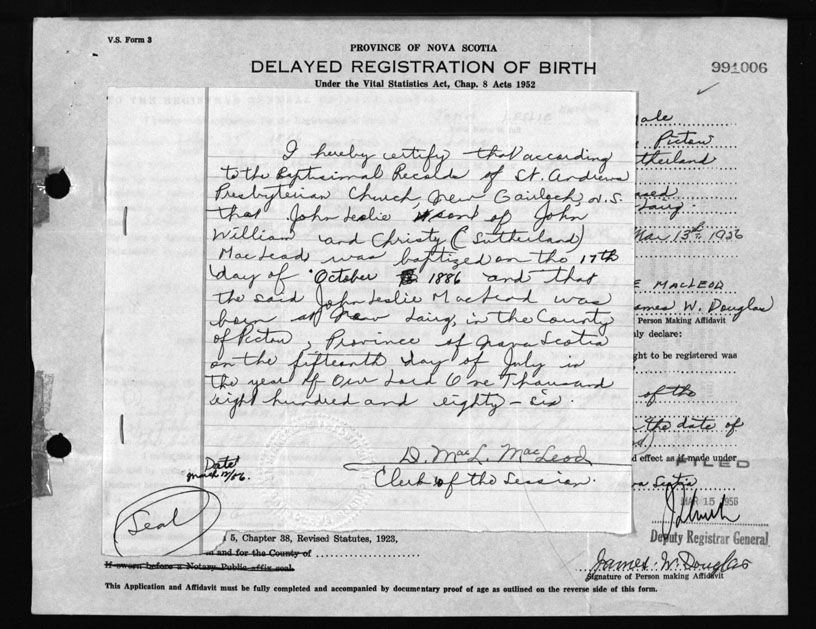 V.S. Form 3
PROVINCE OF NOVA SCOTIA
DELAYED REGISTRATION OF BIRTH
991006
Under the Vital Statistics Act, Chap. 8 Acts 1952
I hereby certify that according
to the Baptisimal Records of St. Andrews
Presbyterian Church, New Gairloch, N.S.
that John Leslie son of John
William and Christy (Sutherland)
MacLeod was baptized on the 17th
day of October 1886 and that
the said John Leslie MacLeod was
born at New Lairg, in the County
of Pictou, Province of Nova Scotia
on the fifteenth day of July in
the year of Our Lord One Thousand
eight hundred and eighty-six.
D. MacL. MacLeod
Clerk of the Session.
Date
March 12/56.
Seal
ale
Pictou
therland
ased
Lairg
Mar 13th 1956
E MACLEOD
ames W. Douglas
Person Making Affidavit
ly declare:
ght to be registered was
of the
the date of
d effect as if made under
FILED
va Scotia
MAR 15 1956
Deputy Registrar General
5, Chapter 38, Revised Statutes, 1923,
and for the County of
If sworn before a Notary Public affix seal.
James W. Douglas
Signature of Person making Affidavit
This Application and Affidavit must be fully completed and accompanied by documentary proof of age as outlined on the reverse side of this form.